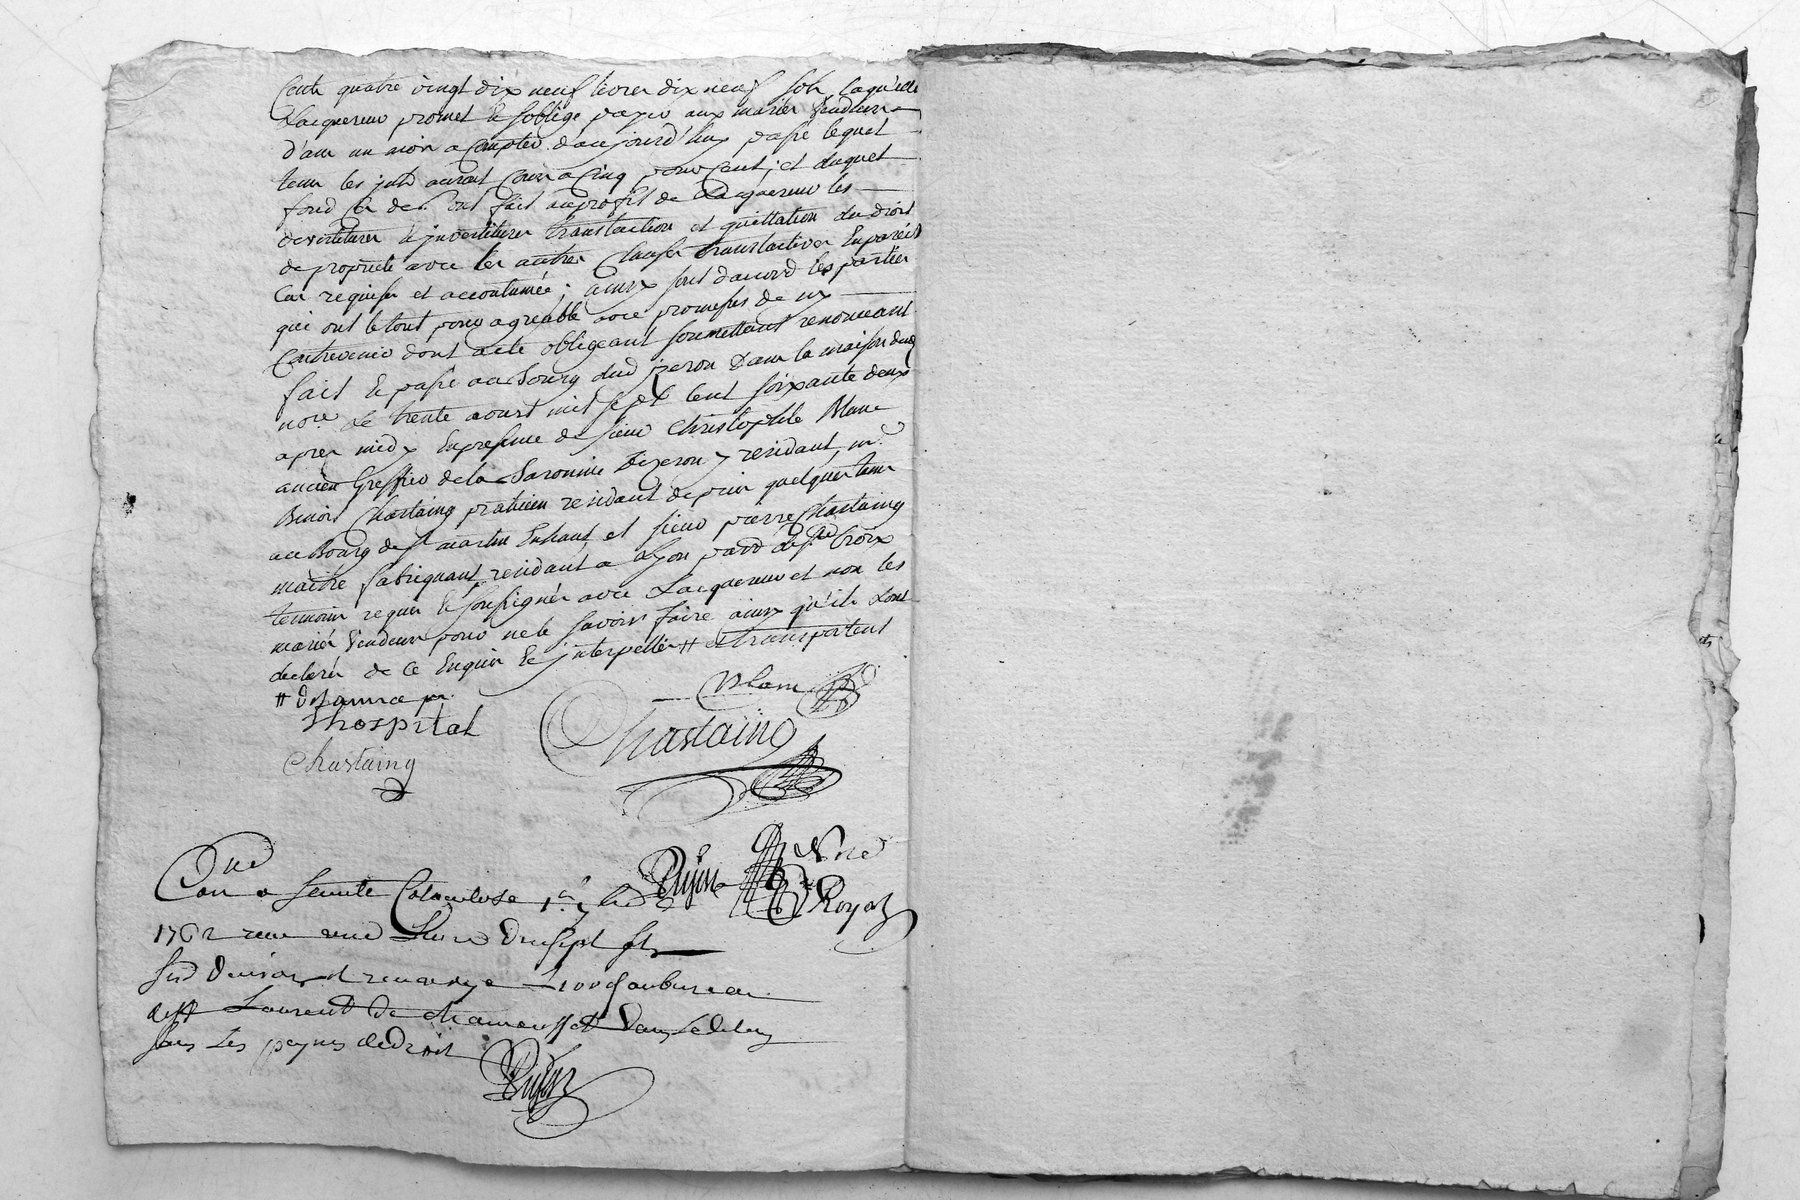 Cents quatre vingt dix neuf livres dix neuf sols laquelle
Lacquereur promet et soblige payer aux mariés vendeurs
d'ans un mois a compter daujourd'huy passé lequel
tems les jnts auront cours a Cinq pour Cent, et duquel
fond Ces dts ont fait au profit de Lacquereur les
devestitures et jnvestitures translaction et quittation du droit
de proprieté avec les autres Clauses translactives En pareil
Cas requises et accoutumée; ainsy sont daccord les parties
qui ont le tout pour agreable avec promesses de ny
Contrevenir dont acte obligeant soumettant renonceant
fait et passé au Bourg dud jzeron Dans la maison dud
nore Le trente aoust mil sept Cent soixante deux
apres midy En presence de sieur Christophle Blanc
ancien Greffier de la Baronnie Dizeron y residant, mr
Benoit Chastaing praticien residant depuis quelques tems
au Bourg de st martin Enhaut, et sieur pierre Chastaing
maitre fabriquant residant a Lyon parr de ste Croix
temoins requis et soussignés avec Lacquereur et non les
mariés vendeurs pour ne le savoir faire ainsy qu'ils Lont
declaré de Ce Enquis et jnterpellés # et transportent
#
thospital
Blanc
Chastaing
Chastaing
Nore
Royal
1762
Laurent de chamousset dans le delay
sous Les peynes de droit